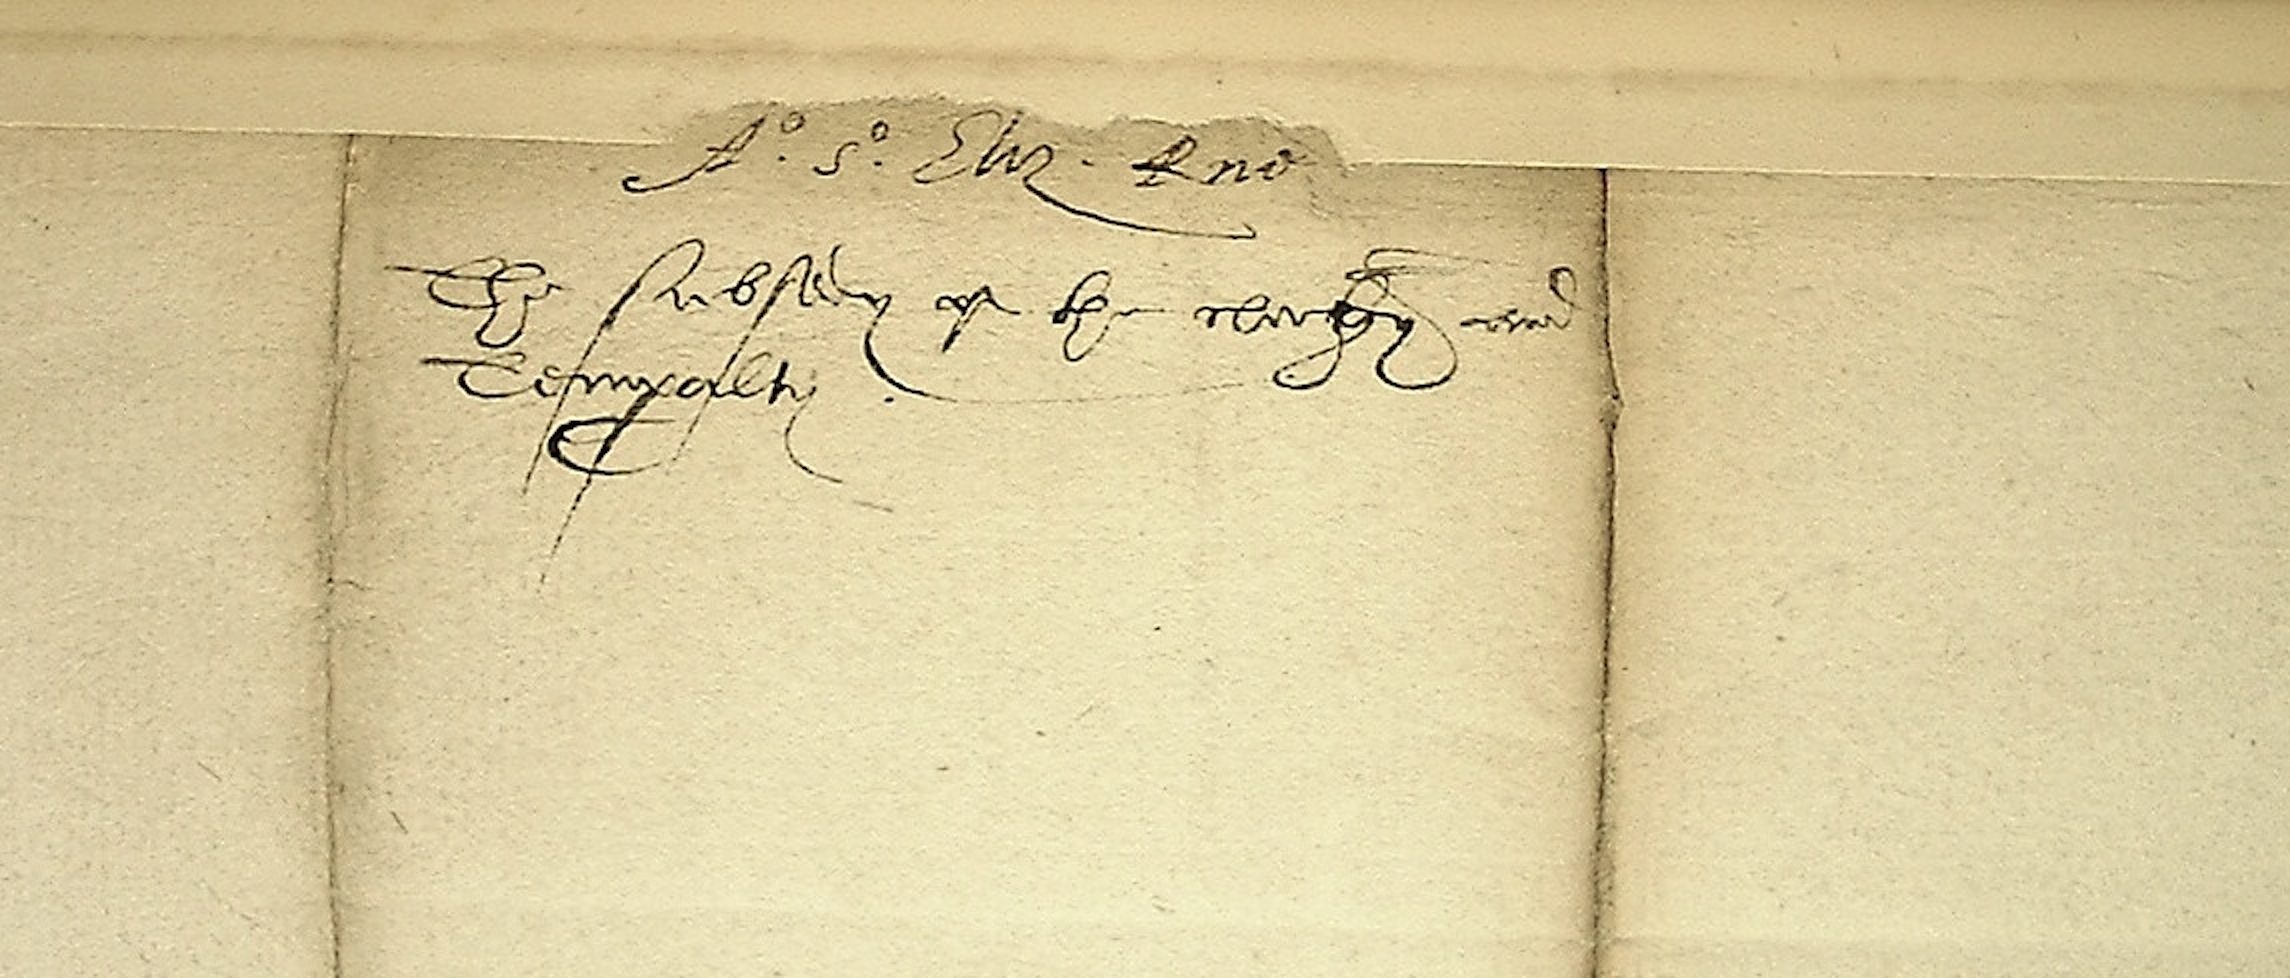 A°. 5°. Eliz. Rne
The subsidy of the clergy and
Temporalty